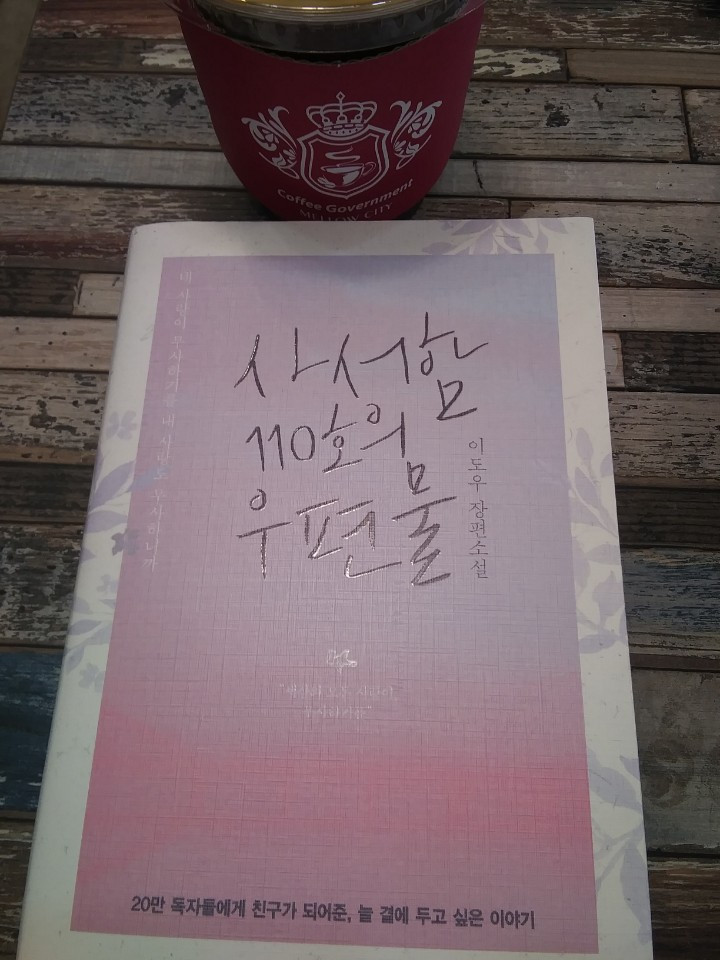 Coffee Government
MELLOW CITY
사서함
110호의
우편물
이도우 장편소설
20만 독자들에게 친구가 되어준, 늘 곁에 두고 싶은 이야기